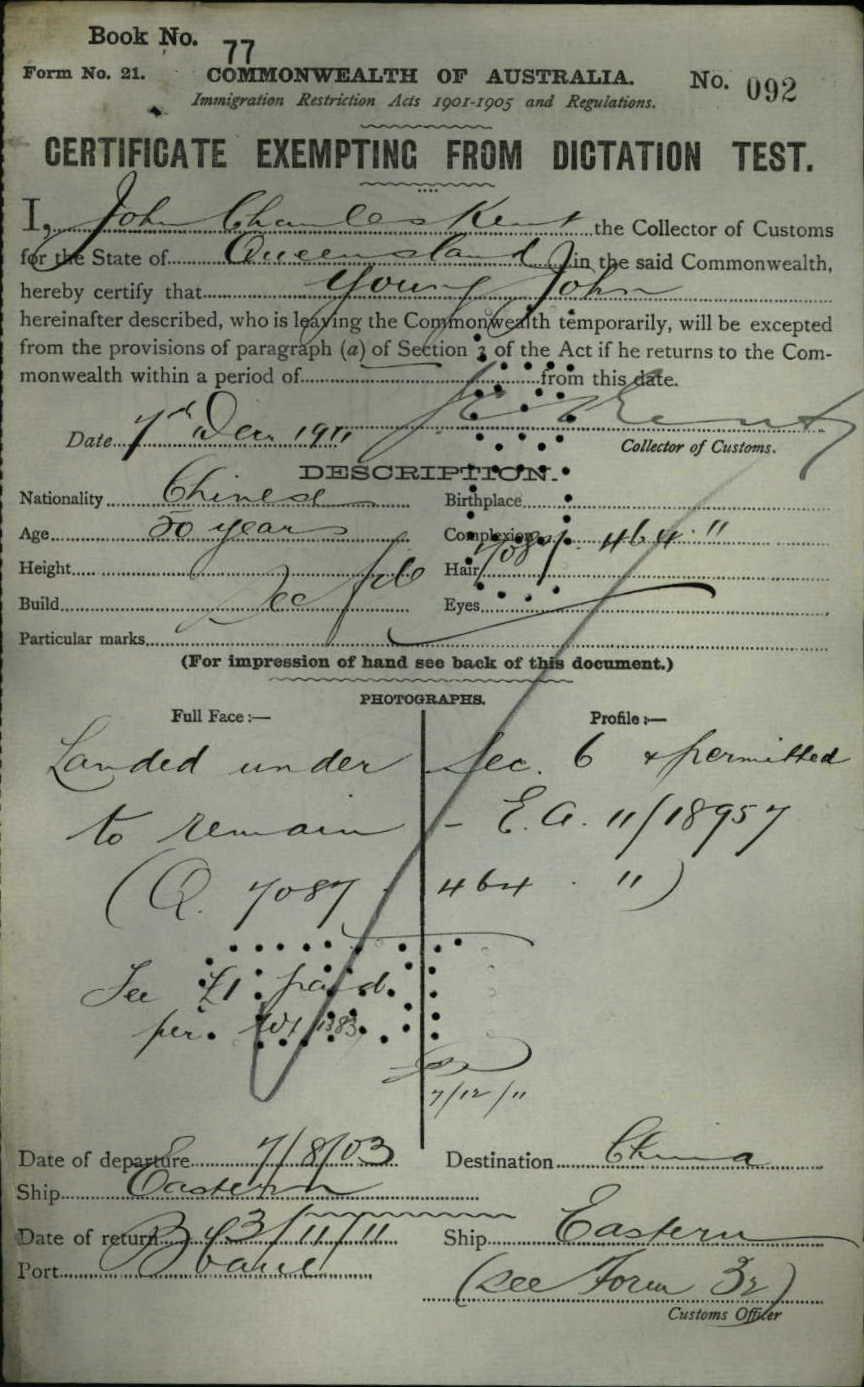 Book No. 77
Form No. 21. COMMONWEALTH OF AUSTRALIA. No. 092
Immigration Restriction Acts 1901-1905 and Regulations.
CERTIFICATE EXEMPTING FROM DICTATION TEST.
I, John Charles Kent the Collector of Customs
for the State of Queensland in the said Commonwealth,
hereby certify that Young John
hereinafter described, who is leaving the Commonwealth temporarily, will be excepted
from the provisions of paragraph (a) of Section 3 of the Act if he returns to the Com-
monwealth within a period of from this date.
Date 7th Dec 1911 Collector of Customs.
DESCRIPTION.
Nationality Chinese Birthplace
Age 50 years Complexion 464 · "
Height Hair 7087
Build See Eyes
Particular marks
(For impression of hand see back of this document.)
PHOTOGRAPHS.
Full Face :— Profile :—
Landed under Sec. 6 & permitted
to remain - E.A. 11/18957
(Q. 7087 · 464 · ")
Fee £1 paid
per
7/12/11
Date of departure 7/8/03 Destination China
Ship Eastern
Date of return 3/11/11 Ship Eastern
Port Bbane
(see Form 32)
Customs Officer